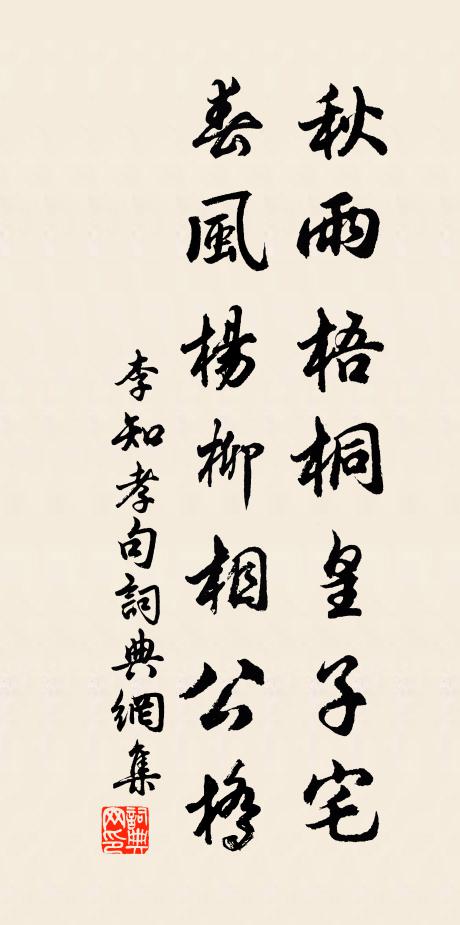 秋雨梧桐皇子宅
春風楊柳相公橋
李知孝句詞典網集
詞典网印